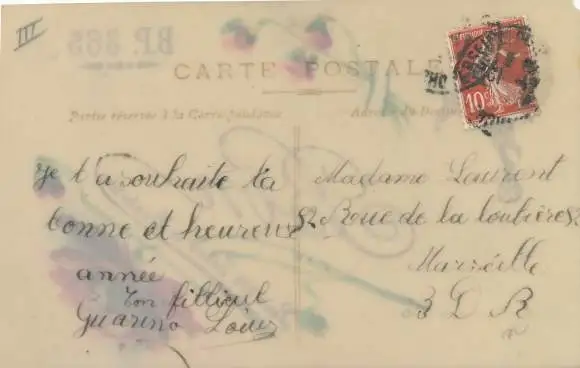 III
B.P. 365
CARTE POSTALE
Partie réservée à la Correspondance
Je t a souhaite ta
bonne et heureuse
année
Ton fillieul
Guarino Louis
Madame Laurent
82 Rue de la loubière 82
Marseille
B D R
10